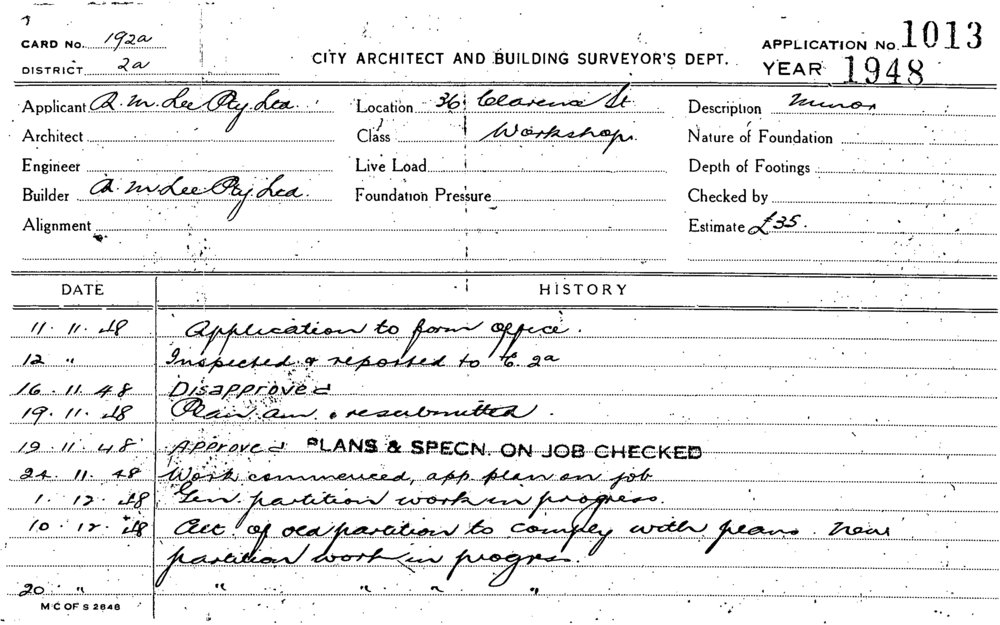 CARD No. 192a
DISTRICT 2a
CITY ARCHITECT AND BUILDING SURVEYOR'S DEPT.
APPLICATION No. 1013
YEAR 1948
Applicant A. M. Lee Pty Ltd. Location 36 Clarence St Description Minor
Architect Class Workshop. Nature of Foundation
Engineer Live Load Depth of Footings
Builder A. M. Lee Pty Ltd. Foundation Pressure Checked by
Alignment Estimate £35.
DATE HISTORY
11. 11. 48 Application to form office.
12 " Inspected & reported to C. 2a
16. 11. 48 Disapproved
19. 11. 48 Plan am & resubmitted.
19. 11. 48 Approved PLANS & SPECN. ON JOB CHECKED
24. 11. 48 Work commenced, app. plan on job
1. 12. 48 Gen. partition work in progress.
10. 12. 48 Alt. of old partition to comply with plans. New
partition work in progrss.
20 " " " " "
M C OF S 2646